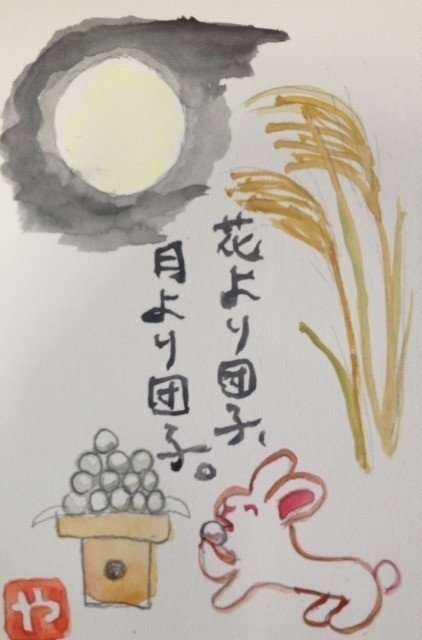 花より団子、
月より団子。
や